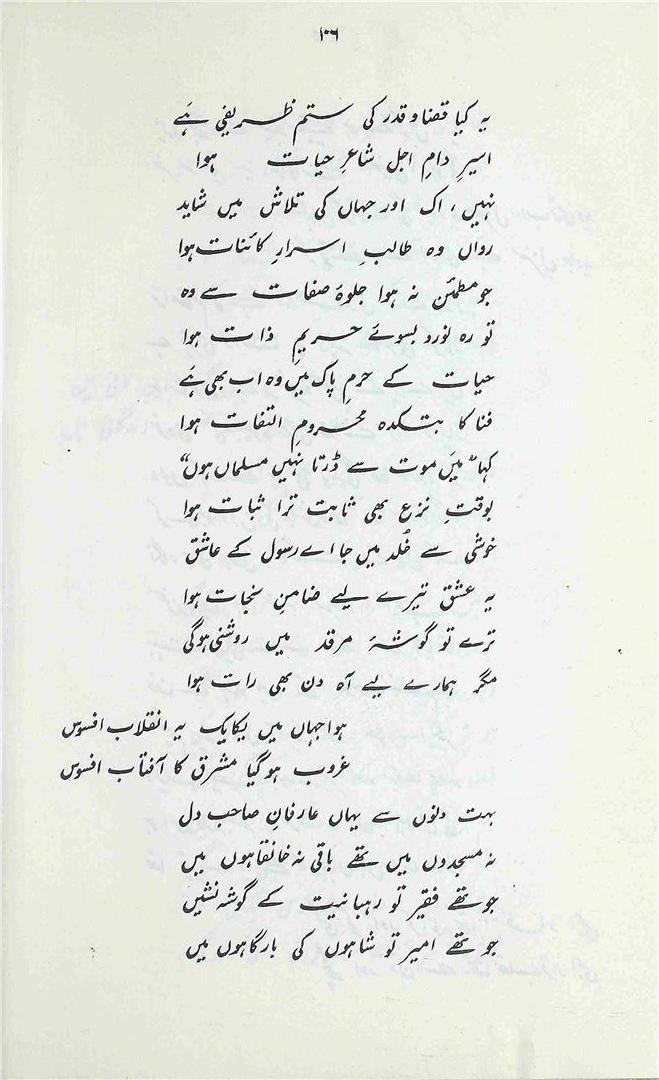 ۱۰۶
یہ کیا قضا و قدر کی ستم ظریفی ہَے
اسیرِ دامِ اجل شاعرِ حیات ہوا
نہیں، اک اور جہاں کی تلاش میں شاید
رواں وہ طالبِ اسرارِ کائنات ہوا
جو مطمئن نہ ہوا جلوۂ صفات سے وہ
تو رہ نورد بسوئے حریمِ ذات ہوا
حیات کے حرمِ پاک میں وہ اب بھی ہَے
فنا کا بتکدہ محرومِ التفات ہوا
کہا ”میَں موت سے ڈرتا نہیں مسلماں ہوں“
بوقتِ نزع بھی ثابت ترا ثبات ہوا
خوشی سے خُلد میں جا اے رسول کے عاشق
یہ عشق تیرے لیے ضامنِ نجات ہوا
ترے تو گوشۂ مرقد میں روشنی ہوگی
مگر ہمارے لیے آہ دن بھی رات ہوا
ہوا جہاں میں یکایک یہ انقلاب افسوس
غروب ہو گیا مشرق کا آفتاب افسوس
بہت دنوں سے یہاں عارفانِ صاحب دل
نہ مسجدوں میں تھے باقی نہ خانقاہوں میں
جو تھے فقیر تو رہبانیت کے گوشہ نشیں
جو تھے امیر تو شاہوں کی بارگاہوں میں